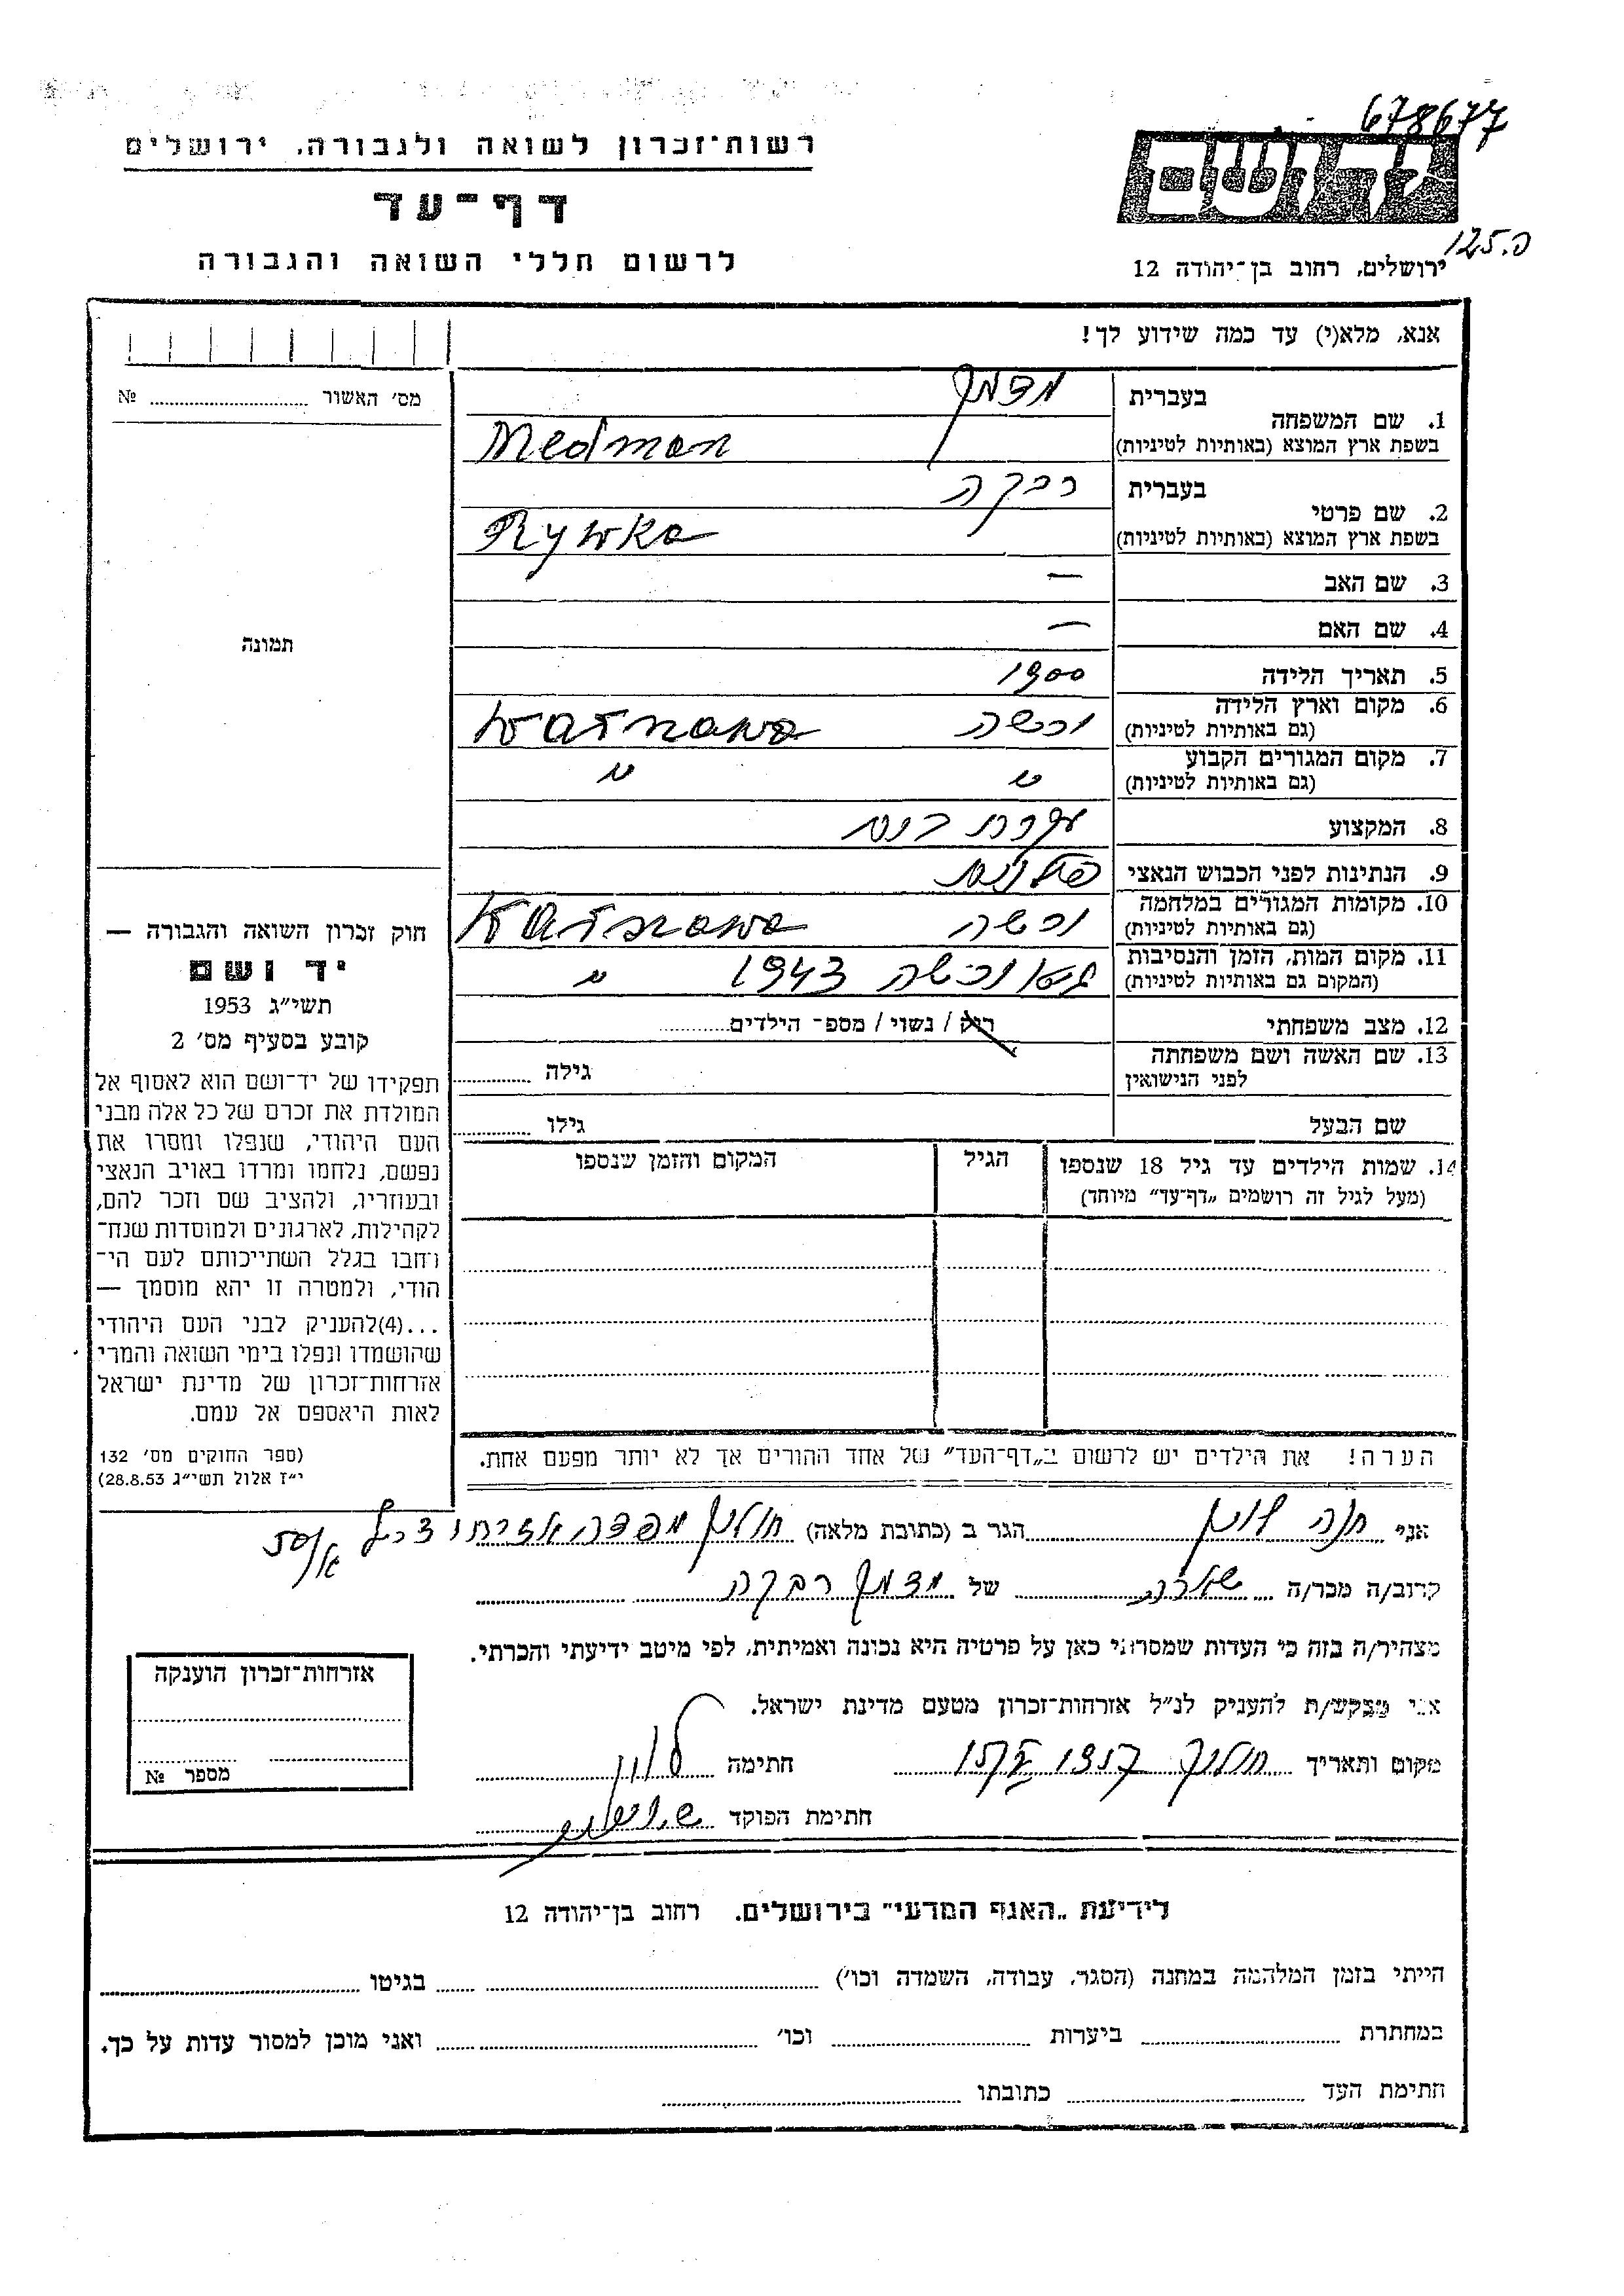 678677
רשות־זכרון לשואה ולגבורה, ירושלים
ידושם
דף־עד
125.כ
לרשום חללי השואה והגבורה
ירושלים, רחוב בן־יהודה 12
אנא, מלא(י) עד כמה שידוע לך!
מס׳ האשור № 
1. שם המשפחה
בעברית מדמן
בשפת ארץ המוצא (באותיות לטיניות) Medman
2. שם פרטי
בעברית רבקה
בשפת ארץ המוצא (באותיות לטיניות) Rywka
3. שם האב —
4. שם האם —
תמונה
5. תאריך הלידה 1900
6. מקום וארץ הלידה
(גם באותיות לטיניות) ורשה Warszawa
7. מקום המגורים הקבוע
(גם באותיות לטיניות) " "
8. המקצוע עקרת בית
9. הנתינות לפני הכבוש הנאצי פולנית
10. מקומות המגורים במלחמה
(גם באותיות לטיניות) ורשה Warszawa
11. מקום המות, הזמן והנסיבות
(המקום גם באותיות לטיניות) גיטו ורשה 1943 "
12. מצב משפחתי רוק / נשוי / מספ־ הילדים
13. שם האשה ושם משפחתה
לפני הנישואין גילה
שם הבעל גילו
14. שמות הילדים עד גיל 18 שנספו הגיל המקום והזמן שנספו
(מעל לגיל זה רושמים „דף־עד” מיוחד)
חוק זכרון השואה והגבורה —
יד ושם
תשי״ג 1953
קובע בסעיף מס׳ 2
תפקידו של יד־ושם הוא לאסוף אל
המולדת את זכרם של כל אלה מבני
העם היהודי, שנפלו ומסרו את
נפשם, נלחמו ומרדו באויב הנאצי
ובעוזריו, ולהציב שם וזכר להם,
לקהילות, לארגונים ולמוסדות שנח־
רבו בגלל השתייכותם לעם הי־
הודי, ולמטרה זו יהא מוסמך —
...(4)להעניק לבני העם היהודי
שהושמדו ונפלו בימי השואה והמרי
אזרחות־זכרון של מדינת ישראל
לאות היאספם אל עמם.
(ספר החוקים מס׳ 132
י״ז אלול תשי״ג 28.8.53)
הערה! את הילדים יש לרשום ב„דף־העד” של אחד ההורים אך לא יותר מפעם אחת.
אני חנה לוין הגר ב (כתובת מלאה) חולון
קרוב/ה מכר/ה של מדמן רבקה
מצהיר/ה בזה כי העדות שמסרתי כאן על פרטיה היא נכונה ואמיתית, לפי מיטב ידיעתי והכרתי.
אני מבקש/ת להעניק לנ״ל אזרחות־זכרון מטעם מדינת ישראל.
מקום ותאריך חולון חתימה לוין
חתימת הפוקד
אזרחות־זכרון הוענקה
מספר №
לידיעת „האגף המדעי” בירושלים, רחוב בן־יהודה 12
הייתי בזמן המלחמה במחנה (הסגר, עבודה, השמדה וכו׳) בגיטו
במחתרת ביערות וכו׳ ואני מוכן למסור עדות על כך.
חתימת העד כתובתו